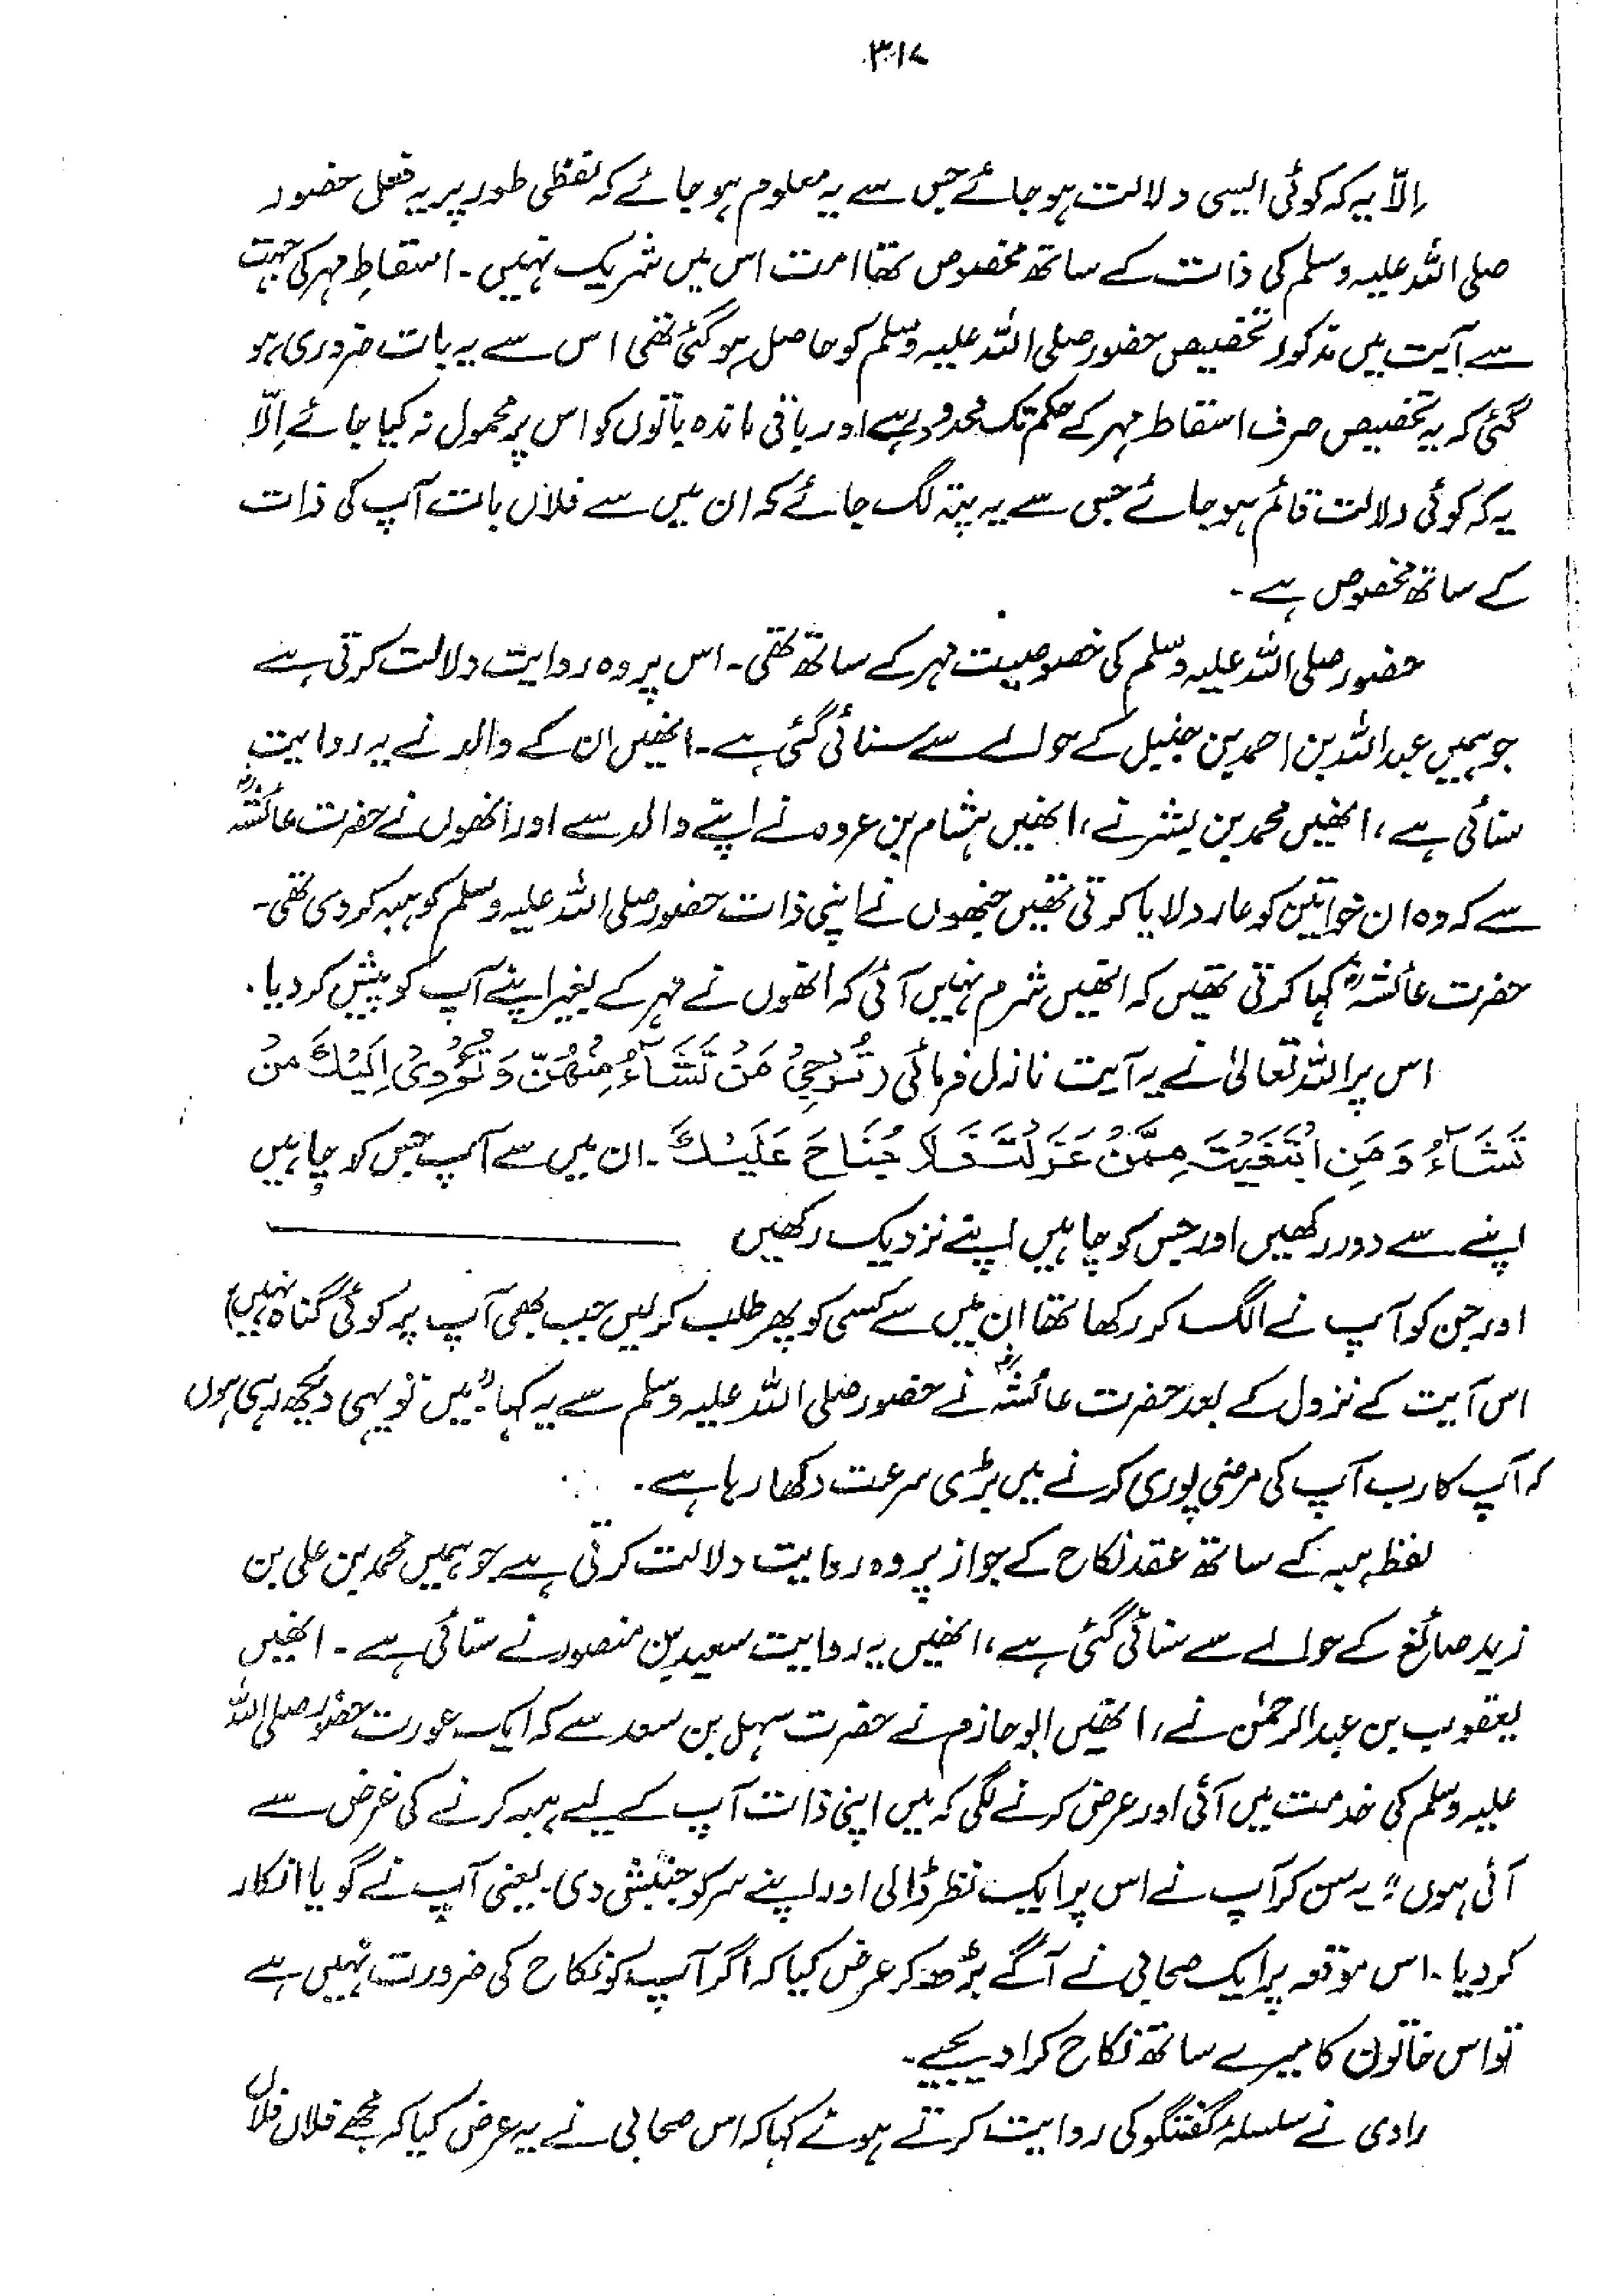 ۳۱۷
اِلّا یہ کہ کوئی ایسی دلالت ہو جائے جس سے یہ معلوم ہو جائے کہ لفظی طور پر یہ فعل حضور
صلی اللہ علیہ وسلم کی ذات کے ساتھ مخصوص تھا امت اس میں شریک نہیں۔ اسقاطِ مہر کی جہت
سے آیت میں مذکور تخصیص حضور صلی اللہ علیہ وسلم کو حاصل ہو گئی تھی اس سے یہ بات ضروری ہو
گئی کہ یہ تخصیص صرف اسقاط مہر کے حکم تک محدود رہے اور باقی ماندہ باتوں کو اس پر محمول نہ کیا جائے اِلّا
یہ کہ کوئی دلالت قائم ہو جائے جس سے یہ پتہ لگ جائے کہ ان میں سے فلاں بات آپ کی ذات
کے ساتھ مخصوص ہے۔
حضور صلی اللہ علیہ وسلم کی خصوصیت مہر کے ساتھ تھی۔ اس پر وہ روایت دلالت کرتی ہے
جو ہمیں عبداللہ بن احمد بن حنبل کے حوالے سے سنائی گئی ہے۔ انھیں ان کے والد نے یہ روایت
سنائی ہے، انھیں محمد بن بشر نے، انھیں ہشام بن عروہ نے اپنے والد سے اور انھوں نے حضرت عائشہؓ
سے کہ وہ ان خواتین کو عار دلایا کرتی تھیں جنھوں نے اپنی ذات حضور صلی اللہ علیہ وسلم کو ہبہ کر دی تھی۔
حضرت عائشہؓ کہا کرتی تھیں کہ انھیں شرم نہیں آئی کہ انھوں نے مہر کے بغیر اپنے آپ کو پیش کر دیا۔
اس پر اللہ تعالیٰ نے یہ آیت نازل فرمائی (تُرْجِیْ مَنْ تَشَآءُ مِنْهُنَّ وَتُؤْوِیْ اِلَیْكَ مَنْ
تَشَآءُ وَمَنِ ابْتَغَیْتَ مِمَّنْ عَزَلْتَ فَلَا جُنَاحَ عَلَیْكَ۔ ان میں سے آپ جس کو چاہیں
اپنے سے دور رکھیں اور جس کو چاہیں اپنے نزدیک رکھیں
اور جن کو آپ نے الگ کر رکھا تھا ان میں سے کسی کو پھر طلب کر لیں جب بھی آپ پر کوئی گناہ نہیں)
اس آیت کے نزول کے بعد حضرت عائشہؓ نے حضور صلی اللہ علیہ وسلم سے یہ کہا "میں تو یہی دیکھ رہی ہوں
کہ آپ کا رب آپ کی مرضی پوری کرنے میں بڑی سرعت دکھا رہا ہے۔
لفظ ہبہ کے ساتھ عقد نکاح کے جواز پر وہ روایت دلالت کرتی ہے جو ہمیں محمد بن علی بن
زید صائغ کے حوالے سے سنائی گئی ہے، انھیں یہ روایت سعید بن منصور نے سنائی ہے۔ انھیں
یعقوب بن عبدالرحمٰن نے، انھیں ابو حازم نے حضرت سہل بن سعد سے کہ ایک عورت حضور صلی اللہ
علیہ وسلم کی خدمت میں آئی اور عرض کرنے لگی کہ میں اپنی ذات آپ کے لیے ہبہ کرنے کی غرض سے
آئی ہوں" یہ سن کر آپ نے اس پر ایک نظر ڈالی اور اپنے سر کو جنبش دی۔ یعنی آپ نے گویا انکار
کر دیا۔ اس موقعہ پر ایک صحابی نے آگے بڑھ کر عرض کیا کہ اگر آپ کو نکاح کی ضرورت نہیں ہے
تو اس خاتون کا میرے ساتھ نکاح کرا دیجیے۔
راوی نے سلسلۂ گفتگو کی روایت کرتے ہوئے کہا کہ اس صحابی نے یہ عرض کیا کہ مجھے فلاں فلاں